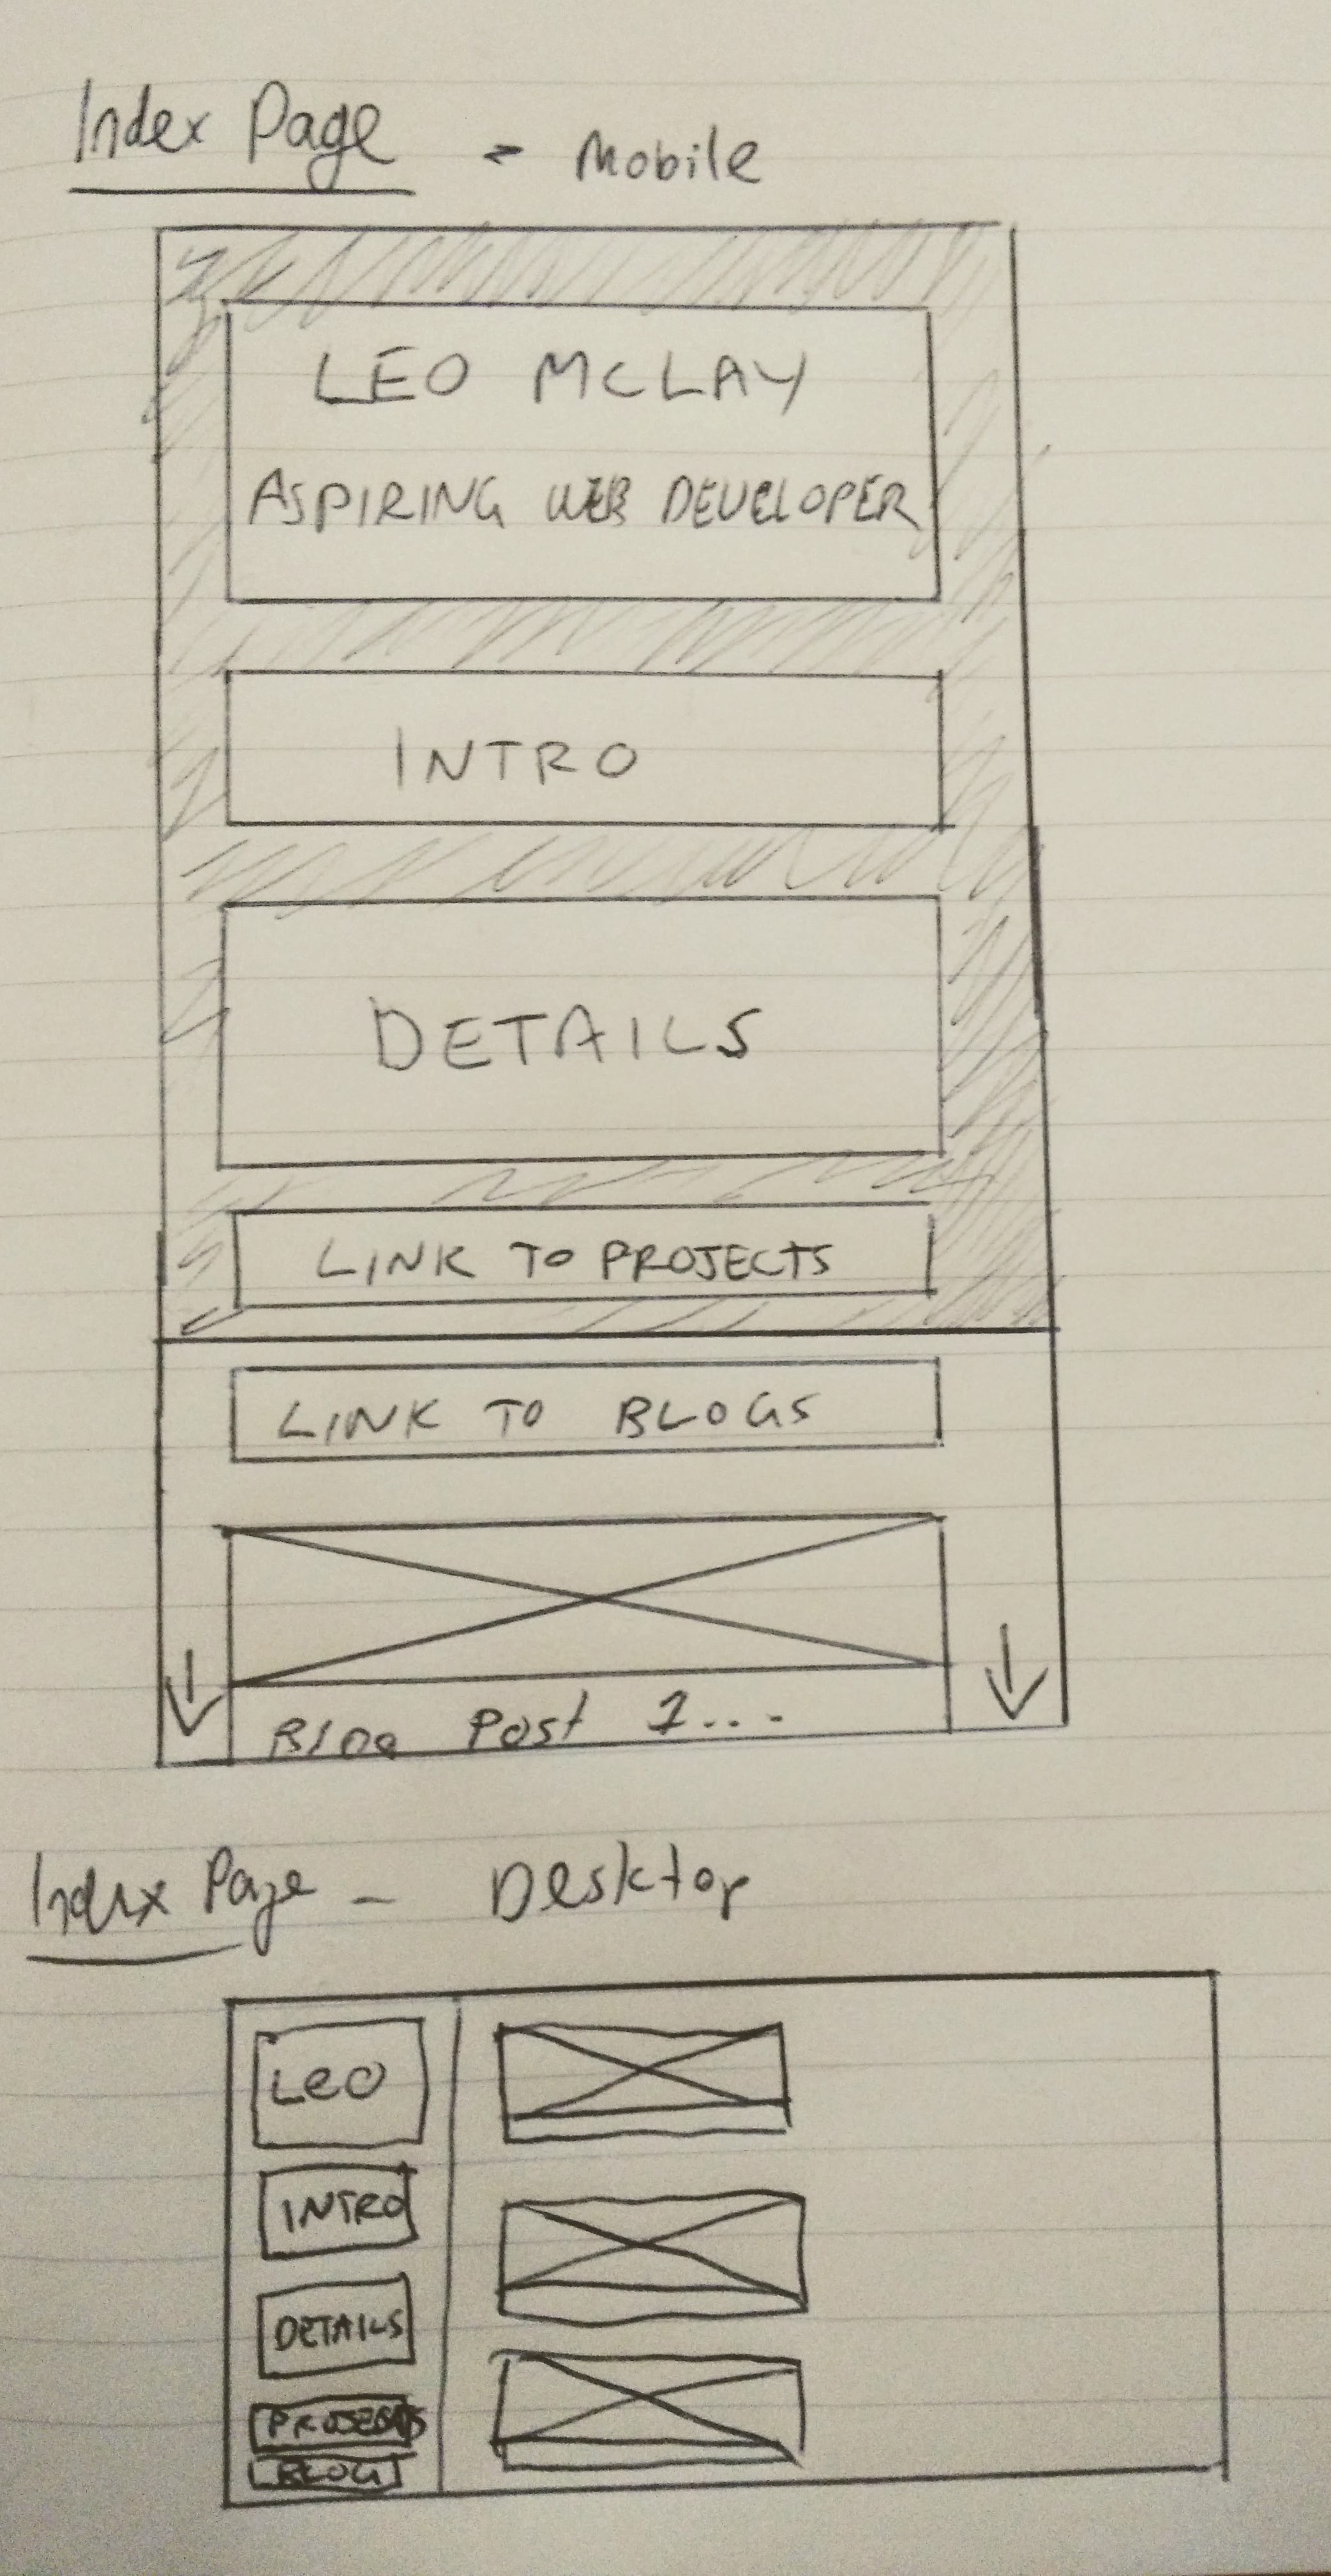 Index Page - Mobile
LEO MCLAY
ASPIRING WEB DEVELOPER
INTRO
DETAILS
LINK TO PROJECTS
LINK TO BLOGS
Blog Post 1...
Index Page - Desktop
Leo
INTRO
DETAILS
PROJECTS
BLOG